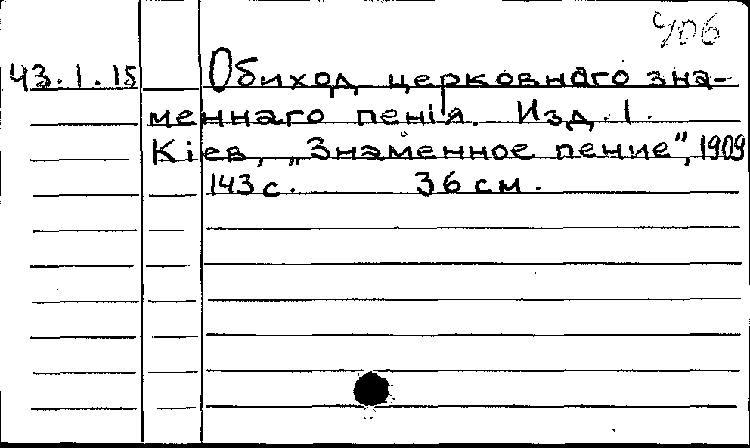 406
43.1.15 Обиход церковнаго зна-
меннаго пенія. Изд. 1.
Кіев, „Знаменное пение", 1909
143 с. 36 см.